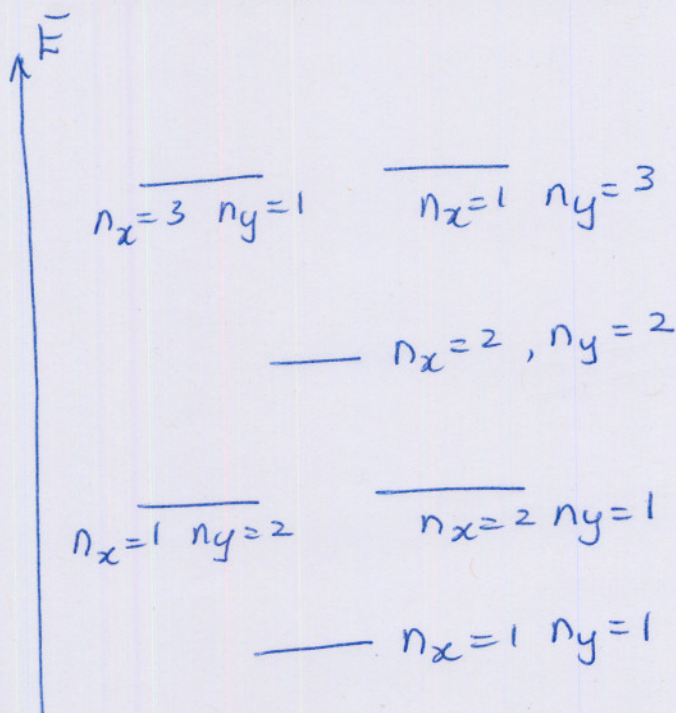 E
nx=3 ny=1 nx=1 ny=3
nx=2 , ny=2
nx=1 ny=2 nx=2 ny=1
nx=1 ny=1